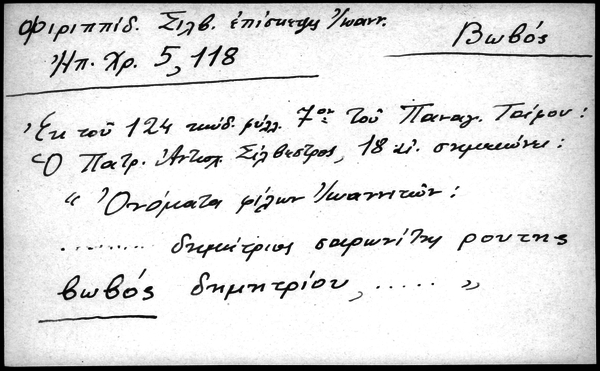 Φιριππίδ. Σιλβ. ἐπίσκεψις Ἰωανν.
Βωβός
Ἠπ. Χρ. 5, 118
Ἐκ τοῦ 124 κώδ. φύλλ. 7ον τοῦ Παναγ. Τάφου:
Ὁ Πατρ. Ἀντιοχ. Σίλβεστρος, 18 αἰ. σημειώνει:
“ Ὀνόματα φίλων Ἰωαννιτῶν:
......... δημήτριος σαρωνίτης ρουτης
βωβός δημητρίου, ..... „